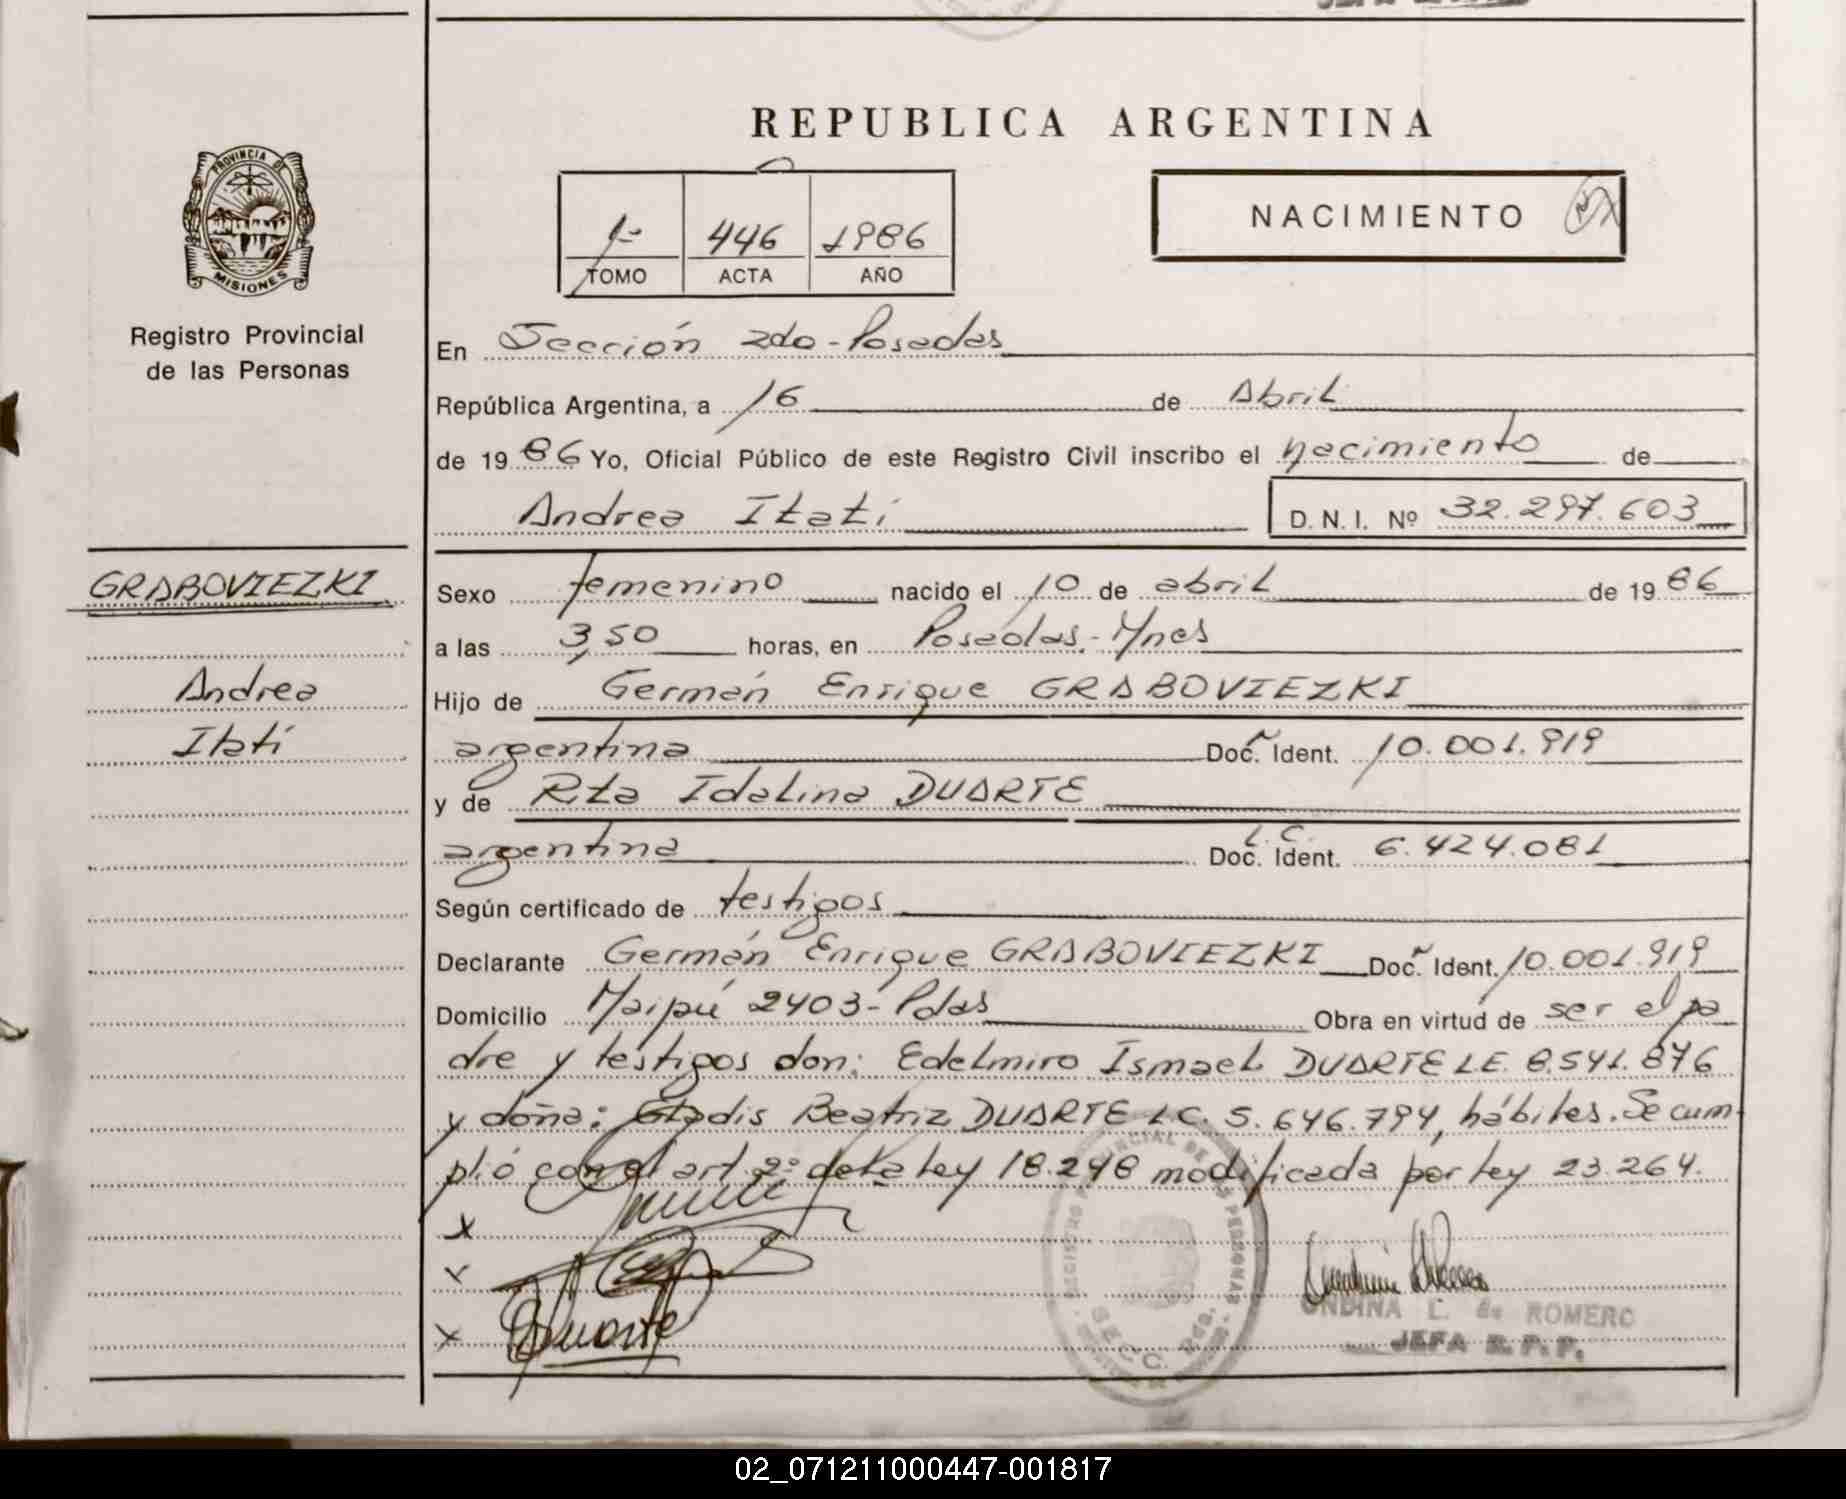 REPUBLICA ARGENTINA
PROVINCIA DE
MISIONES
Registro Provincial
de las Personas
1º 446 1986
TOMO ACTA AÑO
NACIMIENTO
En Sección 2da-Posadas
República Argentina, a 16 de Abril
de 1986 Yo, Oficial Público de este Registro Civil inscribo el nacimiento de
Andrea Itatí D. N. I. Nº 32.297.603
GRABOVIEZKI
Andrea
Itatí
Sexo femenino nacido el 10 de abril de 1986
a las 3,50 horas, en Posadas-Mnes
Hijo de Germán Enrique GRABOVIEZKI
argentina Doc. Ident. 10.001.919
y de Rita Idalina DUARTE
argentina L.C. Doc. Ident. 6.424.081
Según certificado de testigos
Declarante Germán Enrique GRABOVIEZKI Doc. Ident. 10.001.919
Domicilio Maipú 2403-Pdas Obra en virtud de ser el pa
dre y testigos don: Edelmiro Ismael DUARTE LE. 8.541.876
y doña: Gladis Beatriz DUARTE LC. 5.646.794, hábiles. Se cum-
plió con el art. 2º de la ley 18.248 modificada por ley 23.264.
x
x
x Duarte
ONDINA L. de ROMERO
JEFA R. P. P.
02_071211000447-001817